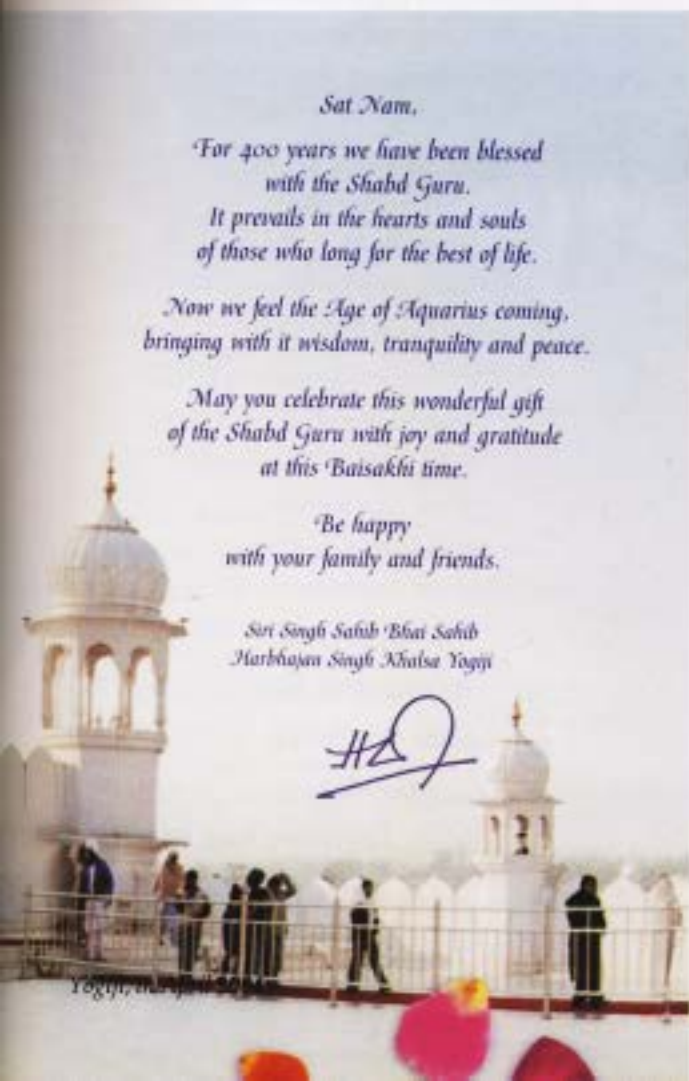 Sat Nam,
For 400 years we have been blessed
with the Shabd Guru.
It prevails in the hearts and souls
of those who long for the best of life.
Now we feel the Age of Aquarius coming,
bringing with it wisdom, tranquility and peace.
May you celebrate this wonderful gift
of the Shabd Guru with joy and gratitude
at this Baisakhi time.
Be happy
with your family and friends.
Siri Singh Sahib Bhai Sahib
Harbhajan Singh Khalsa Yogiji
Yogiji,